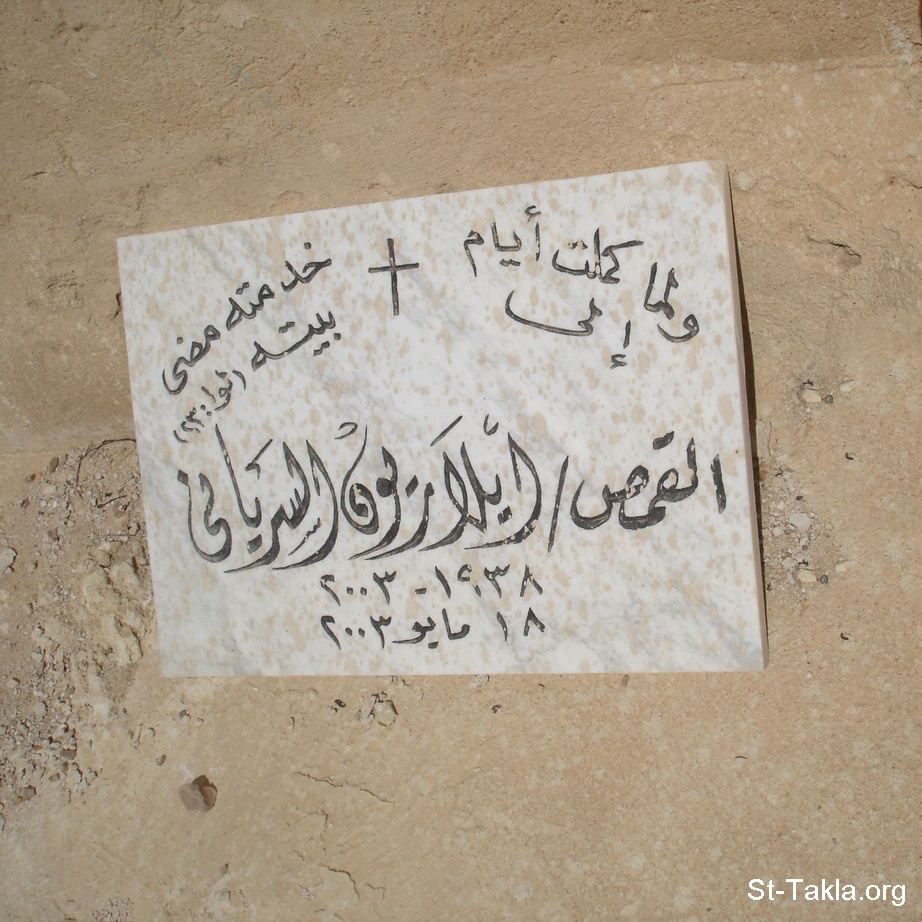 ولما كملت أيام خدمته مضى
إلى بيته (لوا ٢٣:١)
القمص / ايلاريون السرياني
١٩٣٨ - ٢٠٠٣
١٨ مايو ٢٠٠٣
St-Takla.org